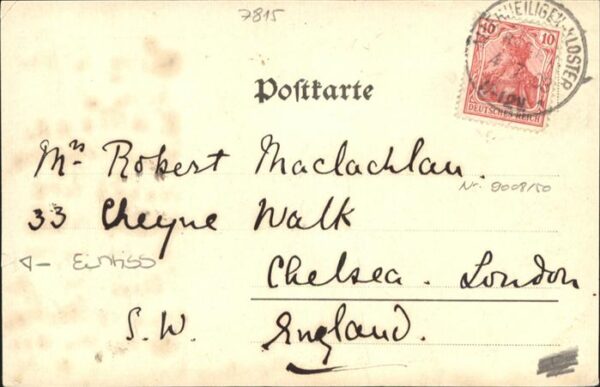 7815
10 10
HEILIGEN-KLOSTER
DEUTSCHES REICH
Postkarte
Mrs Robert Maclachlan.
Nr. 9008/50
33 Cheyne Walk
← Einriss
Chelsea. London
S.W. England.